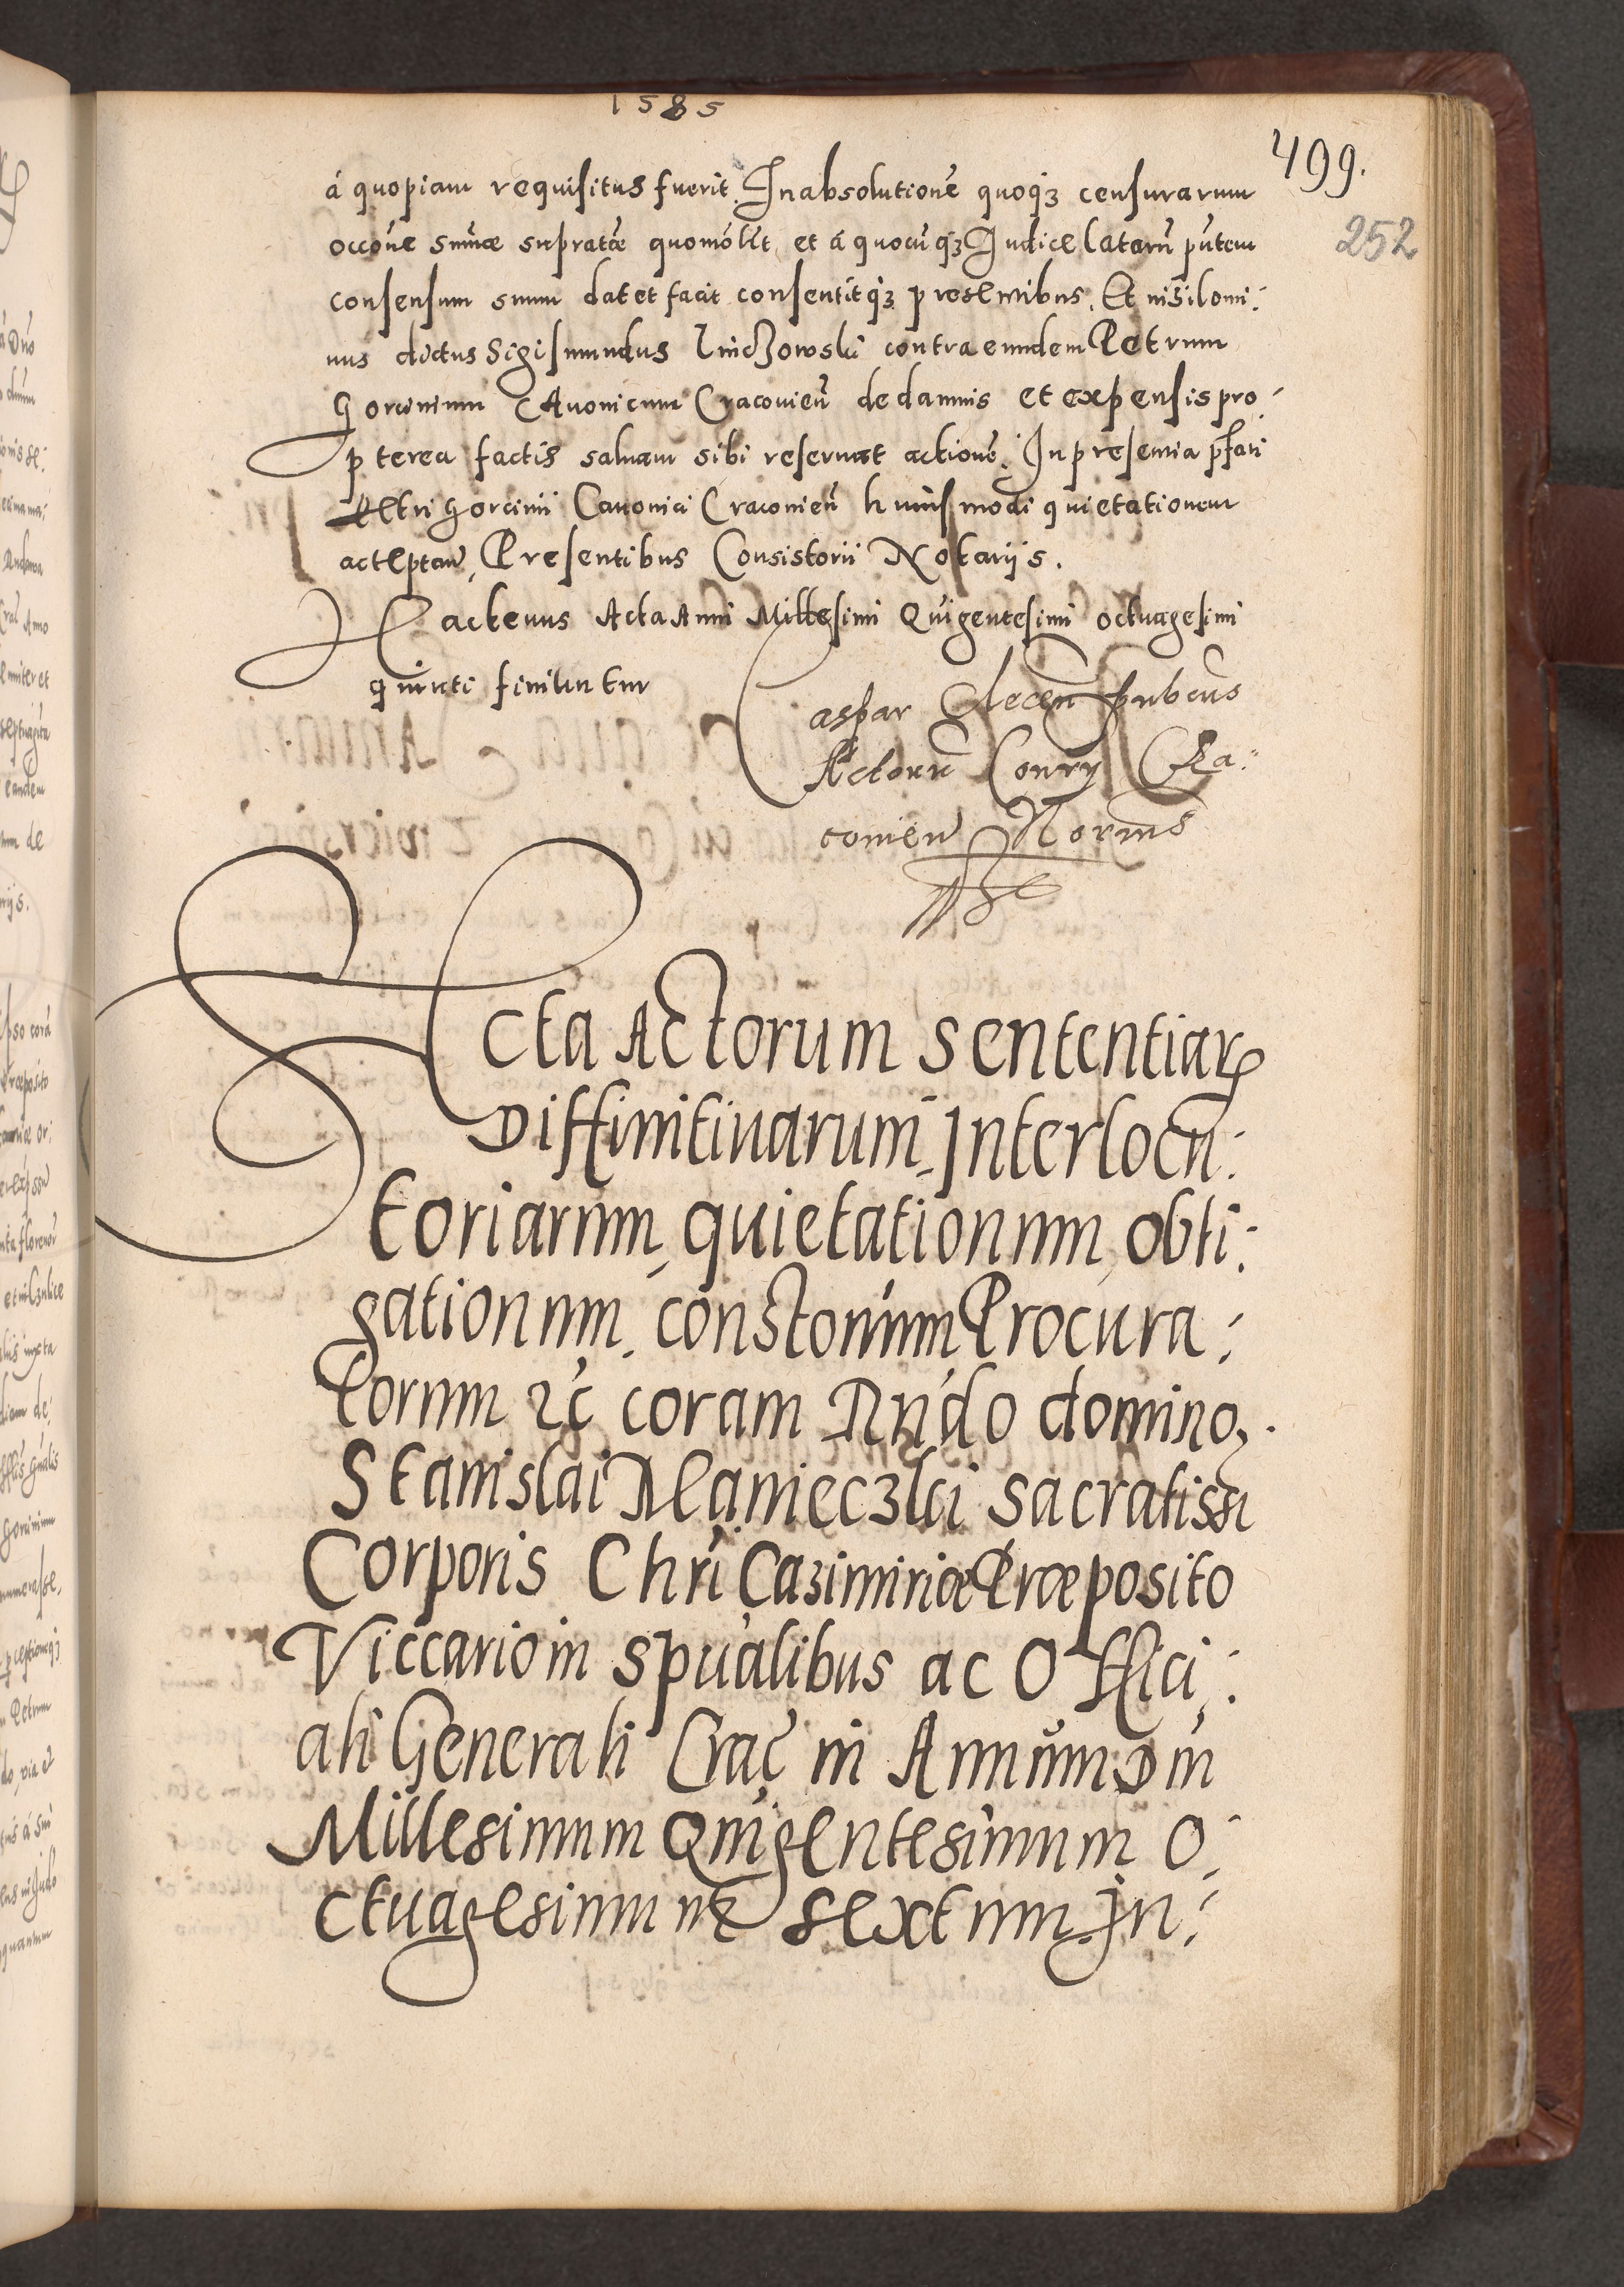 1585
499.
252
á quopiam requisitus fuerit. In absolutione quoqз censurarum
occone smae supratae quomolt et á quocuqз Judice latarū putem
consensum suum dat et facit consentitqз presentibus. Et nisilomi:
nus dictus Sigismundus contra eundem Petrum
Gorcinium CAnonicum Cracovieñ de damnis et expensis pro:
pterea factis saluam sibi reseruat actionē. In presentia pfati
Petri Gorcinii Canonici Cracouieñ huiusmodi quietationem
acceptan̄, Presentibus Consistorii Notarijs.
Hactenus Acta Anni Millesimi Quigentesimi octuagesimi
quinti finiuntur
Caspar pubcus
Actorū Conrÿ Cra:
couien̄ Norius
Acta Actorum Sententiarꝝ
Diffinitiuarum, Interlocu:
toriarum, quietationum, obli:
gationum, constonum Procura:
torum ꝛc coram Rndo domino,
Stanislai Kranieczki sacratissi
Corporis Chri Cazimiriae Praeposito
Viccario in spualibus ac Offici:
ali Generali Crac̄ in Annum Dni
Millesimum Quigentesimum O:
ctuagesimum sextum. In: